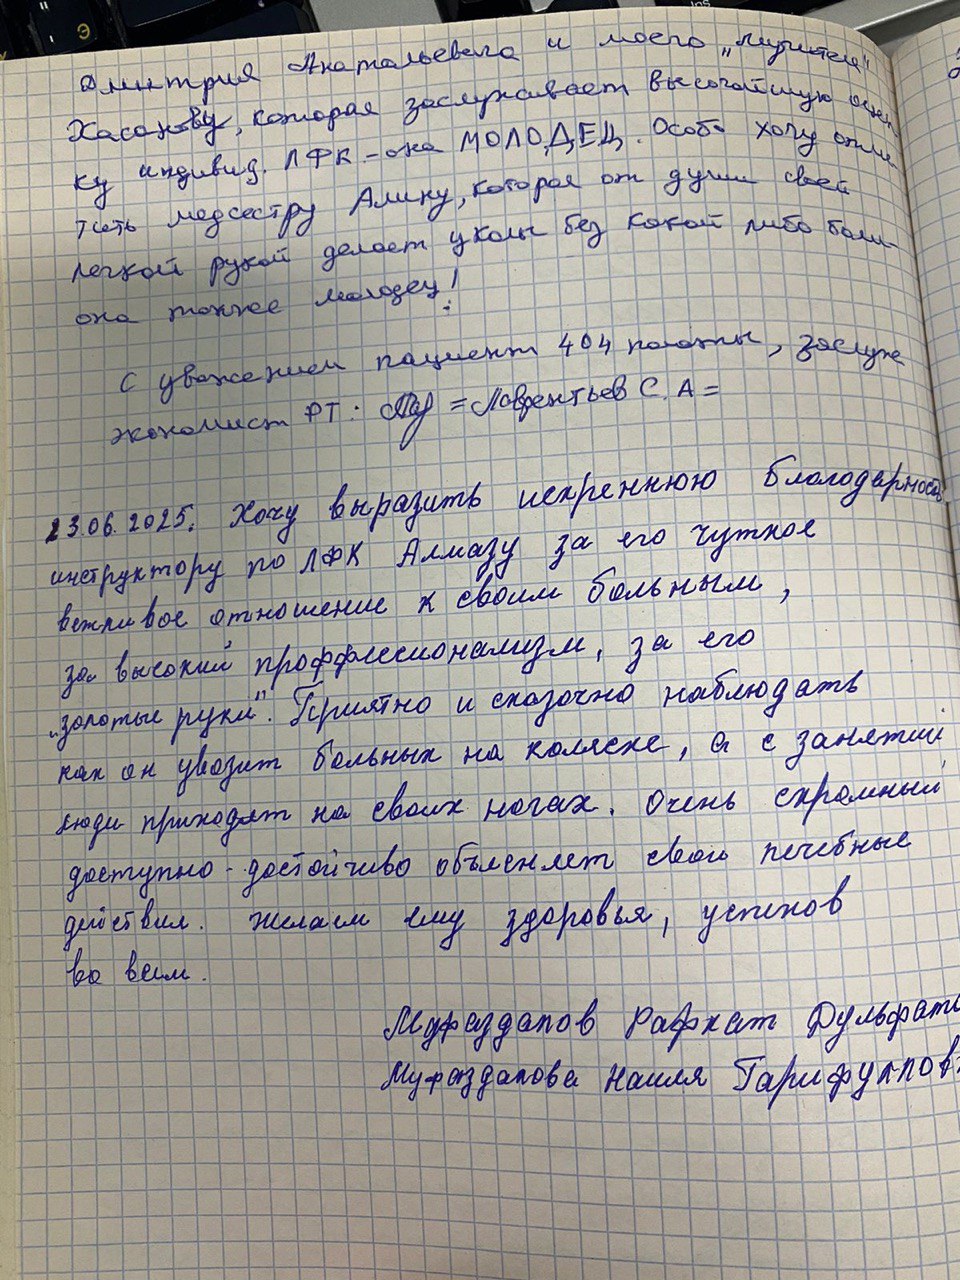 Дмитрия Анатольевича и моего „мучителя"
Хасанову, которая заслуживает высочайшую оцен-
ку индивид. ЛФК – она МОЛОДЕЦ. Особо хочу отме-
тить медсестру Алину, которая от души своей
легкой рукой делает уколы без какой либо боли-
она тоже молодец!
С уважением пациент 404 палаты, заслуже
экономист РТ: =Лаврентьев С.А=
23.06.2025. Хочу выразить искреннюю благодарность
инструктору по ЛФК Алмазу за его чуткое
вежливое отношение к своим больным,
за высокий проффессионализм, за его
„золотые руки". Приятно и сказочно наблюдать
как он увозит больных на коляске, а с занятий
люди приходят на своих ногах. Очень скромный
доступно - достойчиво объясняет свои лечебные
действия. Желаем ему здоровья, успехов
во всём.
Муфаздалов Рафкат Дульфат
Муфаздалова Наиля Гарифуллов